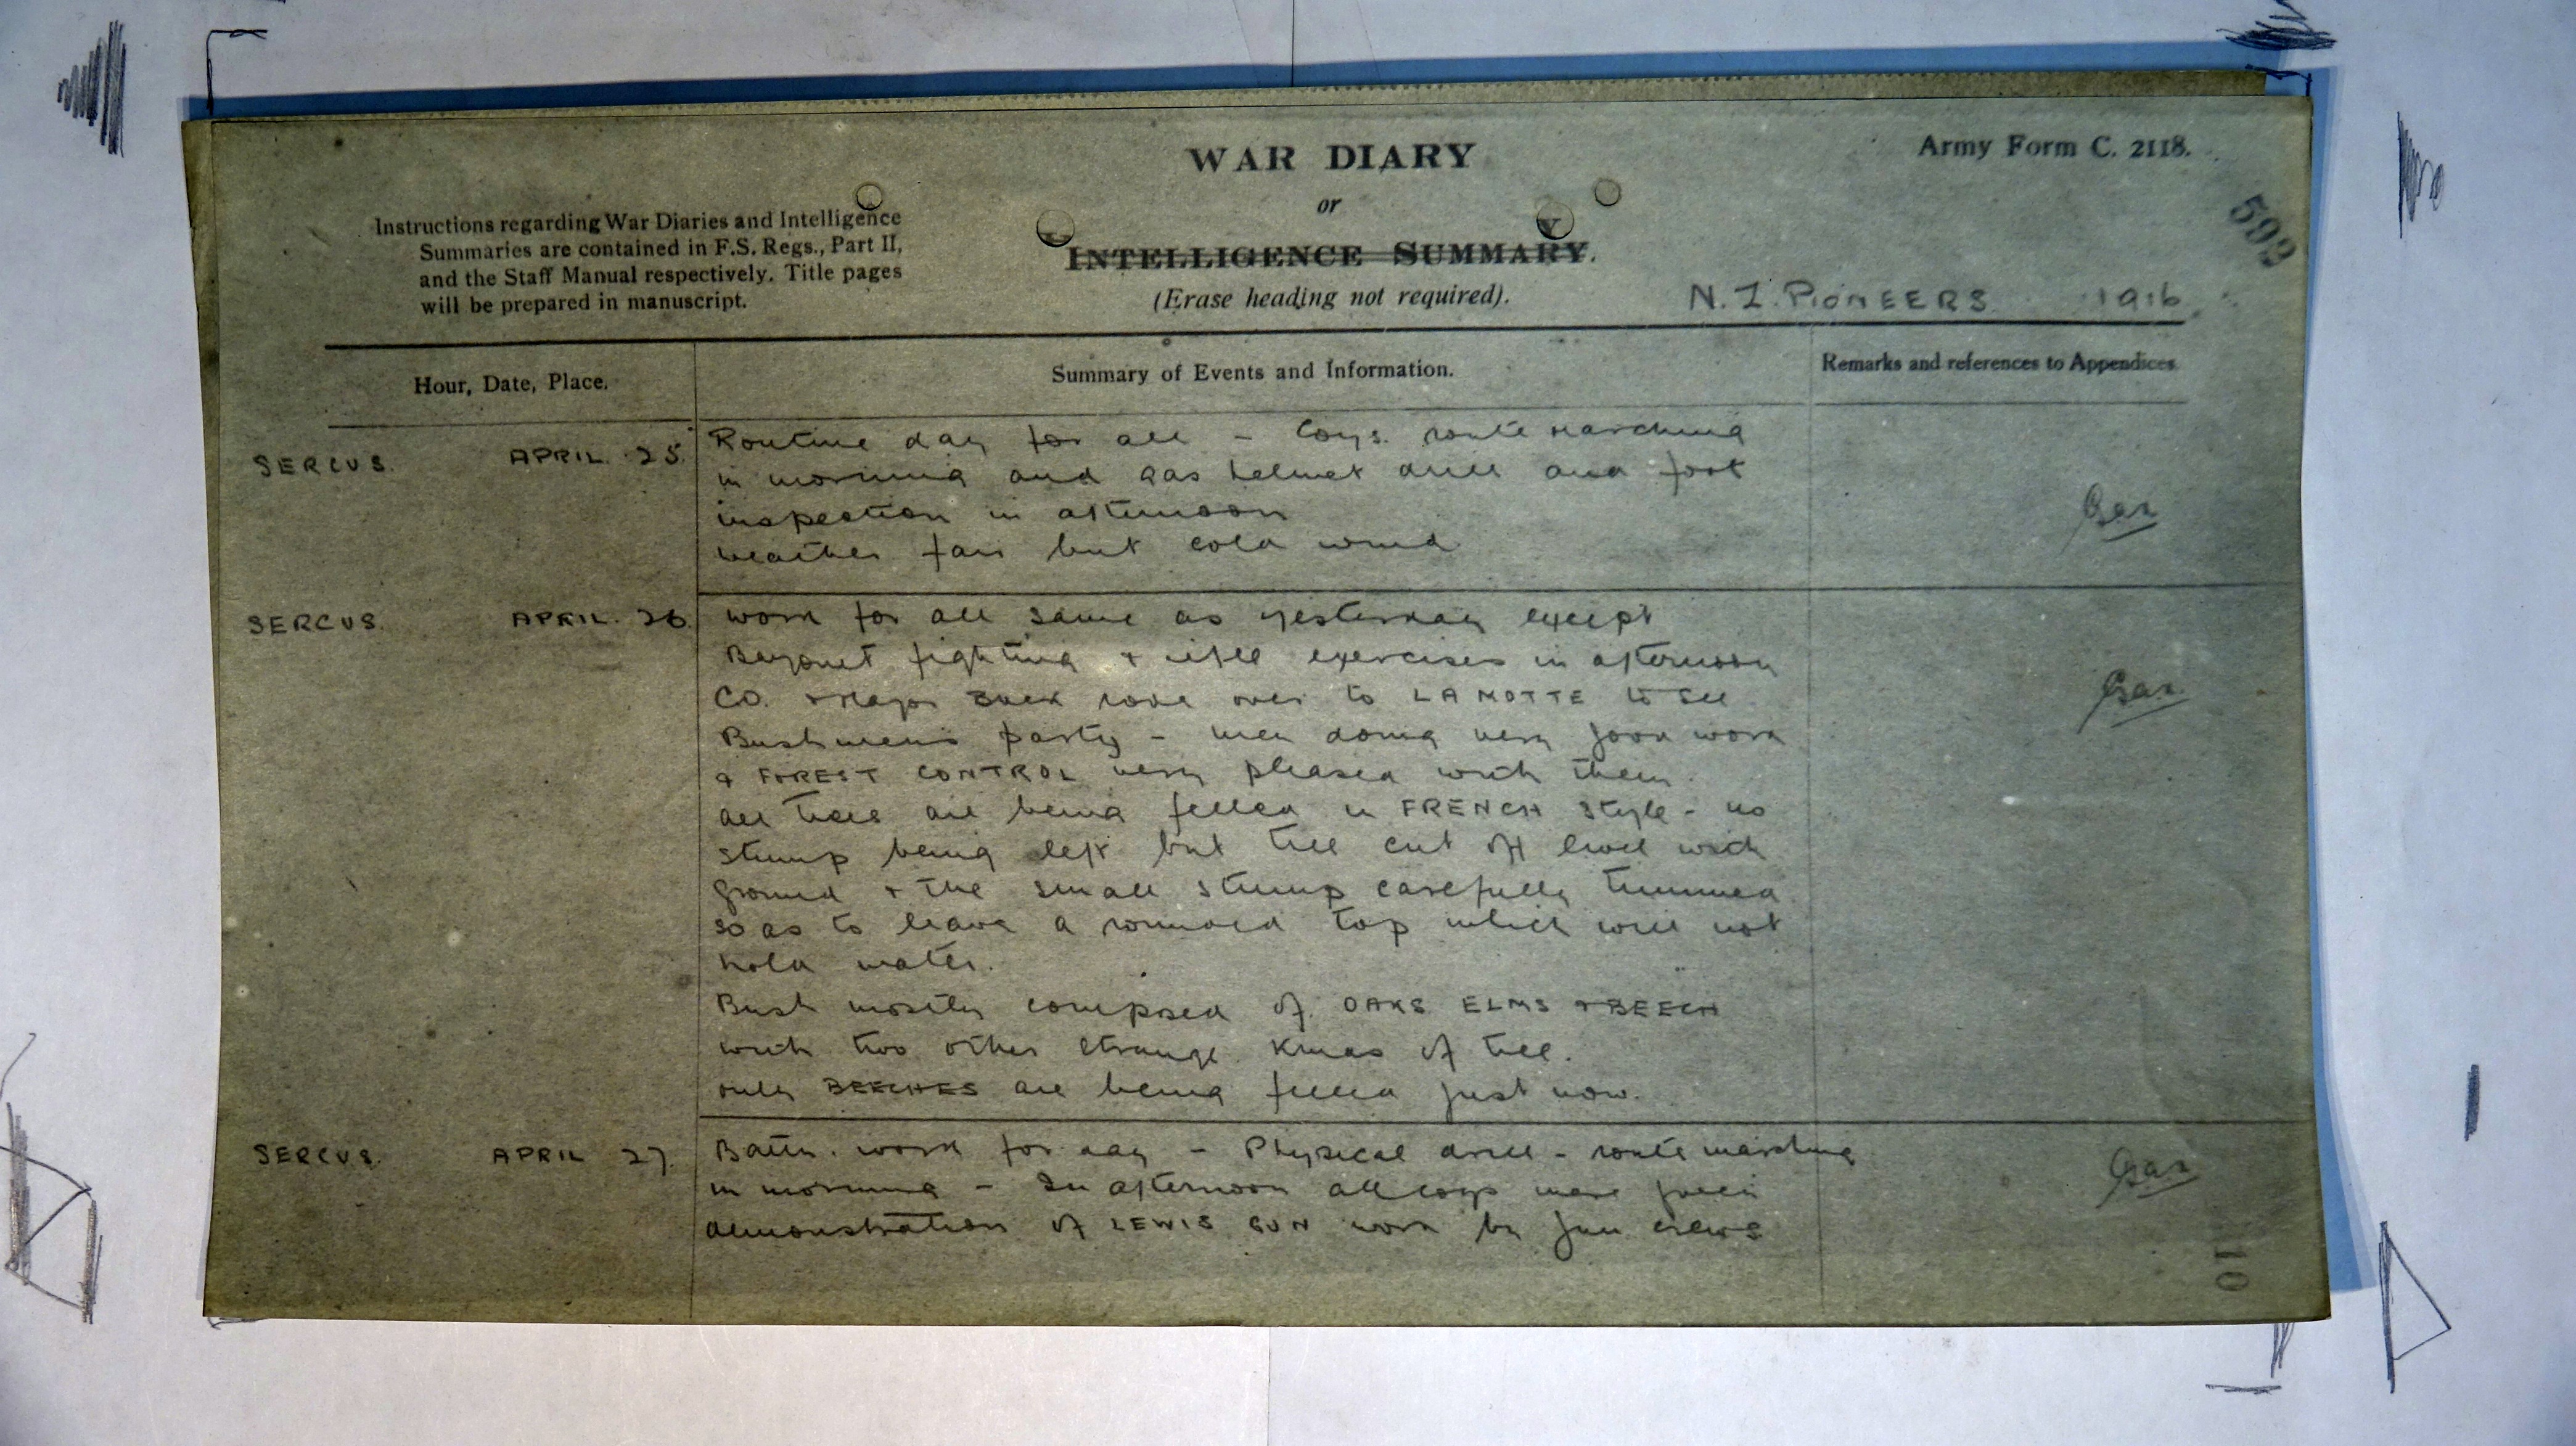 WAR DIARY
or
INTELLIGENCE SUMMARY.
(Erase heading not required).
Army Form C. 2118.
599
Instructions regarding War Diaries and Intelligence
Summaries are contained in F.S. Regs., Part II,
and the Staff Manual respectively. Title pages
will be prepared in manuscript.
N. Z. PIONEERS 1916
Hour, Date, Place.
Summary of Events and Information.
Remarks and references to Appendices
SERCUS. APRIL. 25.
Routine day for all - Coys. route marching
in morning and gas helmet drill and foot
inspection in afternoon
weather fair but cold wind
SERCUS. APRIL. 26.
work for all same as yesterday except
Bayonet fighting + rifle exercises in afternoon
CO. + Major BUCK rode over to LA MOTTE to see
Bushmens party - men doing very good work
+ FOREST CONTROL very pleased with them.
all trees are being felled in FRENCH style - no
stump being left but tree cut off level with
ground + the small stump carefully trimmed
so as to leave a rounded top which will not
hold water.
Bush mostly composed of OAKS ELMS + BEECH
with two other strange kinds of tree.
only BEECHES are being felled just now.
SERCUS. APRIL 27.
Battn. work for day - Physical drill - route marching
in morning - In afternoon all coys were given
demonstration of LEWIS GUN work by gun crews
10